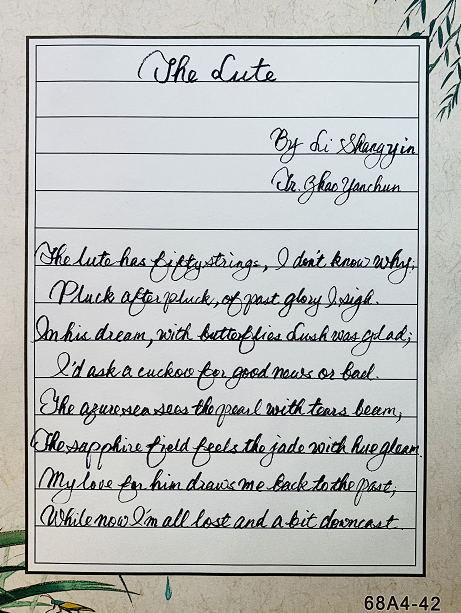 The Lute
By Li Shangyin
Tr. Zhao Yanchun
The lute has fifty strings, I don't know why;
Pluck after pluck, of past glory I sigh.
In his dream, with butterflies Lush was glad;
I'd ask a cuckoo for good news or bad.
The azure sea sees the pearl with tears beam,
The sapphire field feels the jade with hue gleam.
My love for him draws me back to the past;
While now I'm all lost and a bit downcast.
68A4-42